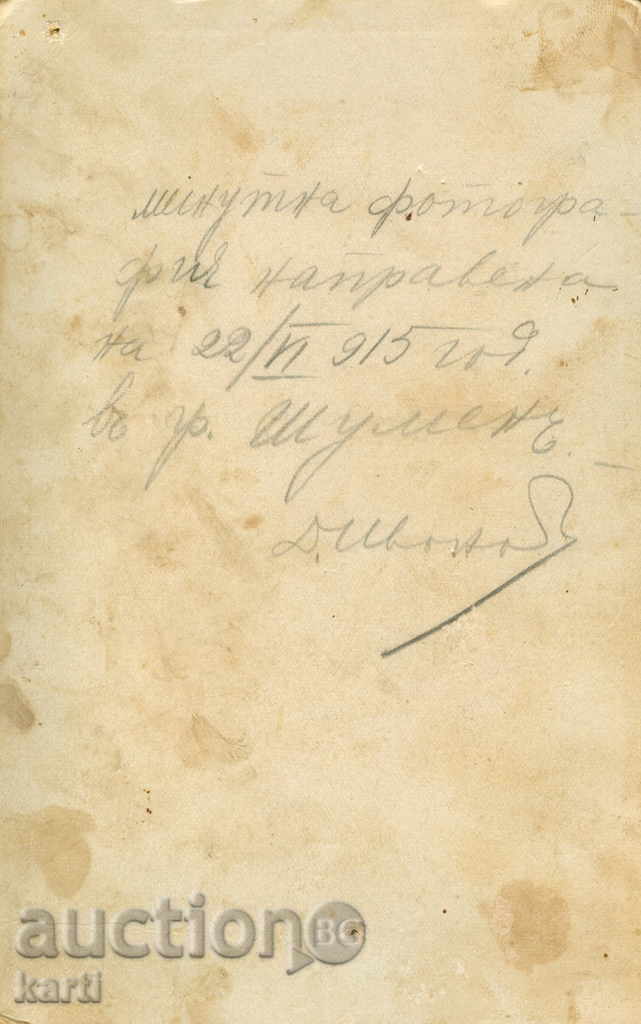 минутна фотогра-
фия направена
на 22/VI 915 год.
въ гр. Шуменъ.
Д. Иванов
auction BG
karti